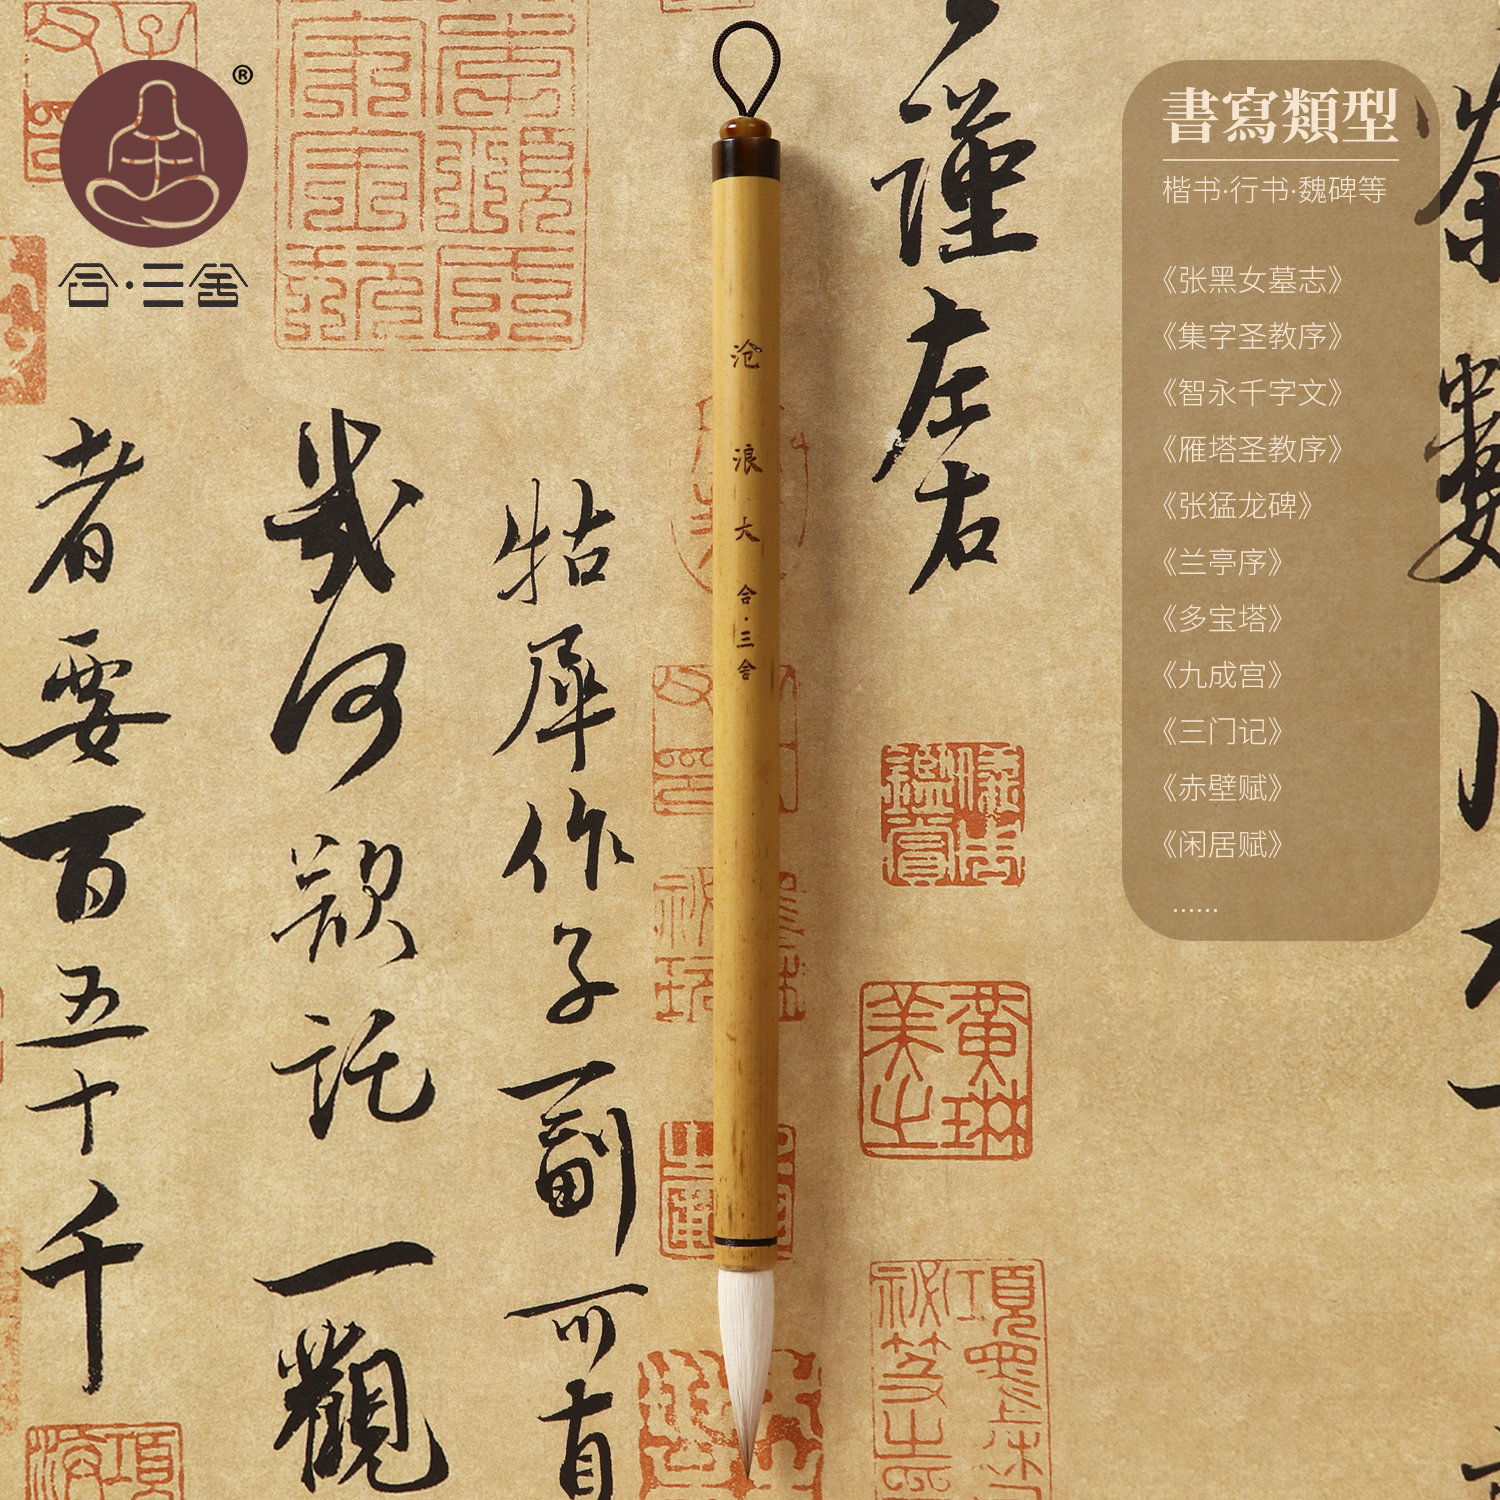 ®
合·三舍
謹
左
右
者
要
百
五
十
千
幾
何
欵
託
一
觀
牯
犀
作
子
一
副
可
直
沧
浪
大
合·三舍
書寫類型
楷书·行书·魏碑等
《张黑女墓志》
《集字圣教序》
《智永千字文》
《雁塔圣教序》
《张猛龙碑》
《兰亭序》
《多宝塔》
《九成宫》
《三门记》
《赤壁赋》
《闲居赋》
......
數
鑑賞
黄琳
美之
項